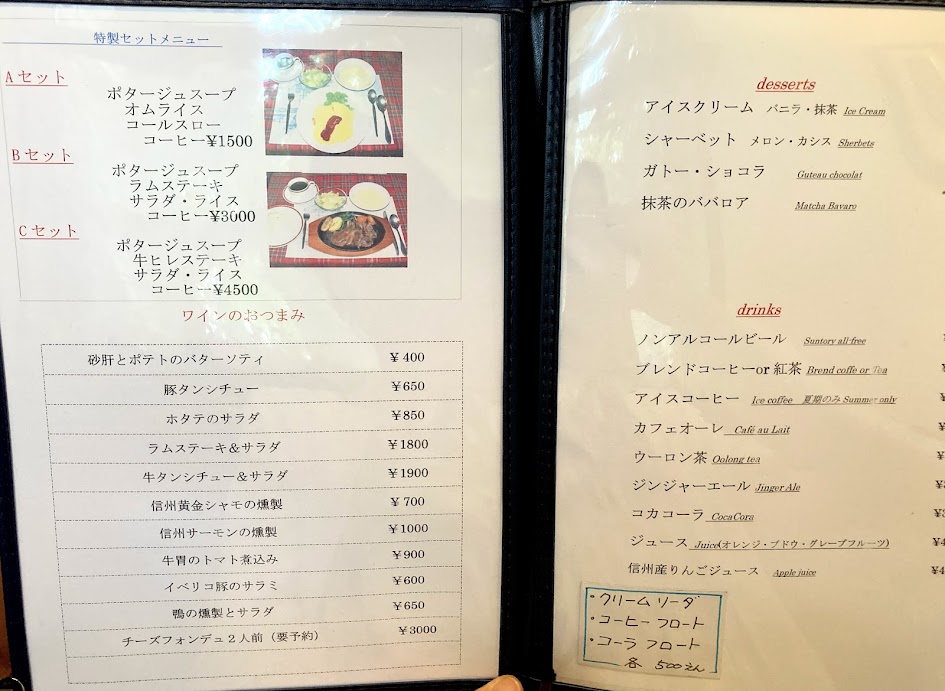 特製セットメニュー
Aセット
ポタージュスープ
オムライス
コールスロー
コーヒー¥1500
Bセット
ポタージュスープ
ラムステーキ
サラダ・ライス
コーヒー¥3000
Cセット
ポタージュスープ
牛ヒレステーキ
サラダ・ライス
コーヒー¥4500
ワインのおつまみ
砂肝とポテトのバターソティ ¥ 400
豚タンシチュー ¥650
ホタテのサラダ ¥850
ラムステーキ＆サラダ ¥1800
牛タンシチュー＆サラダ ¥1900
信州黄金シャモの燻製 ¥ 700
信州サーモンの燻製 ¥1000
牛胃のトマト煮込み ¥900
イベリコ豚のサラミ ¥600
鴨の燻製とサラダ ¥650
チーズフォンデュ２人前（要予約） ¥3000
desserts
アイスクリーム バニラ・抹茶 Ice Cream
シャーベット メロン・カシス Sherbets
ガトー・ショコラ Guteau chocolat
抹茶のババロア Matcha Bavaro
drinks
ノンアルコールビール Suntory all-free
ブレンドコーヒーor 紅茶 Brend coffe or Tea
アイスコーヒー Ice coffee 夏期のみ Summer only
カフェオーレ Café au Lait
ウーロン茶 Oolong tea
ジンジャーエール Jinger Ale
コカコーラ CocaCora
ジュース Juice(オレンジ・ブドウ・グレープフルーツ)
信州産りんごジュース Apple juice
・クリームソーダ
・コーヒーフロート
・コーラフロート
各 500えん